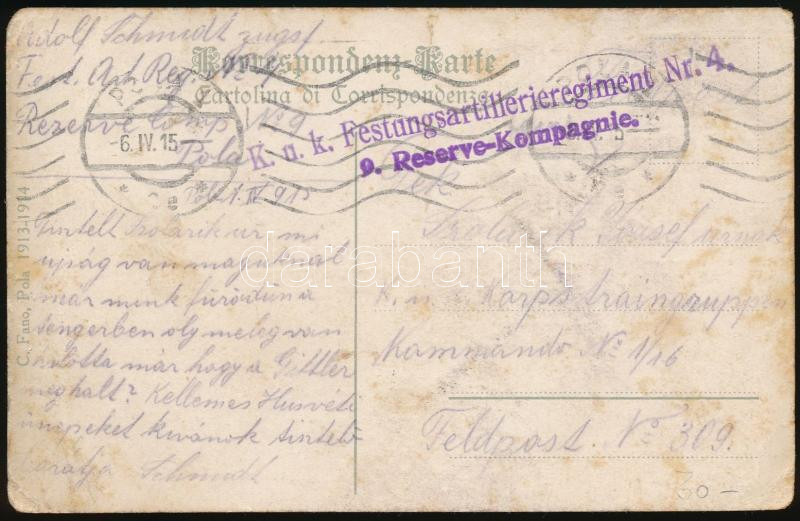 Adolf Schmidt zugsf.
Fest. Art. Reg. No 4
Reserve Comp. No 9
Pola
Korrespondenz-Karte
Cartolina di Corrispondenza
POLA
6.IV.15
K. u. k. Festungsartillerieregiment Nr. 4.
9. Reserve-Kompagnie.
Pola 1. IV 915
Tisztelt Szolarik ur mi
ujság van maguknál
már menk fürödün a
tengerben oly meleg van
tudotta már hogy a Gittler
meghalt? Kellemes Husvéti
ünnepeket kivánok tisztelő
barátja Schmidt
Szolarik József urnak
K. u. k. Korpstraingruppen
Kommando No 1/16
Feldpost No 309.
C. Fano, Pola 1913-1914
30 -
darabanth